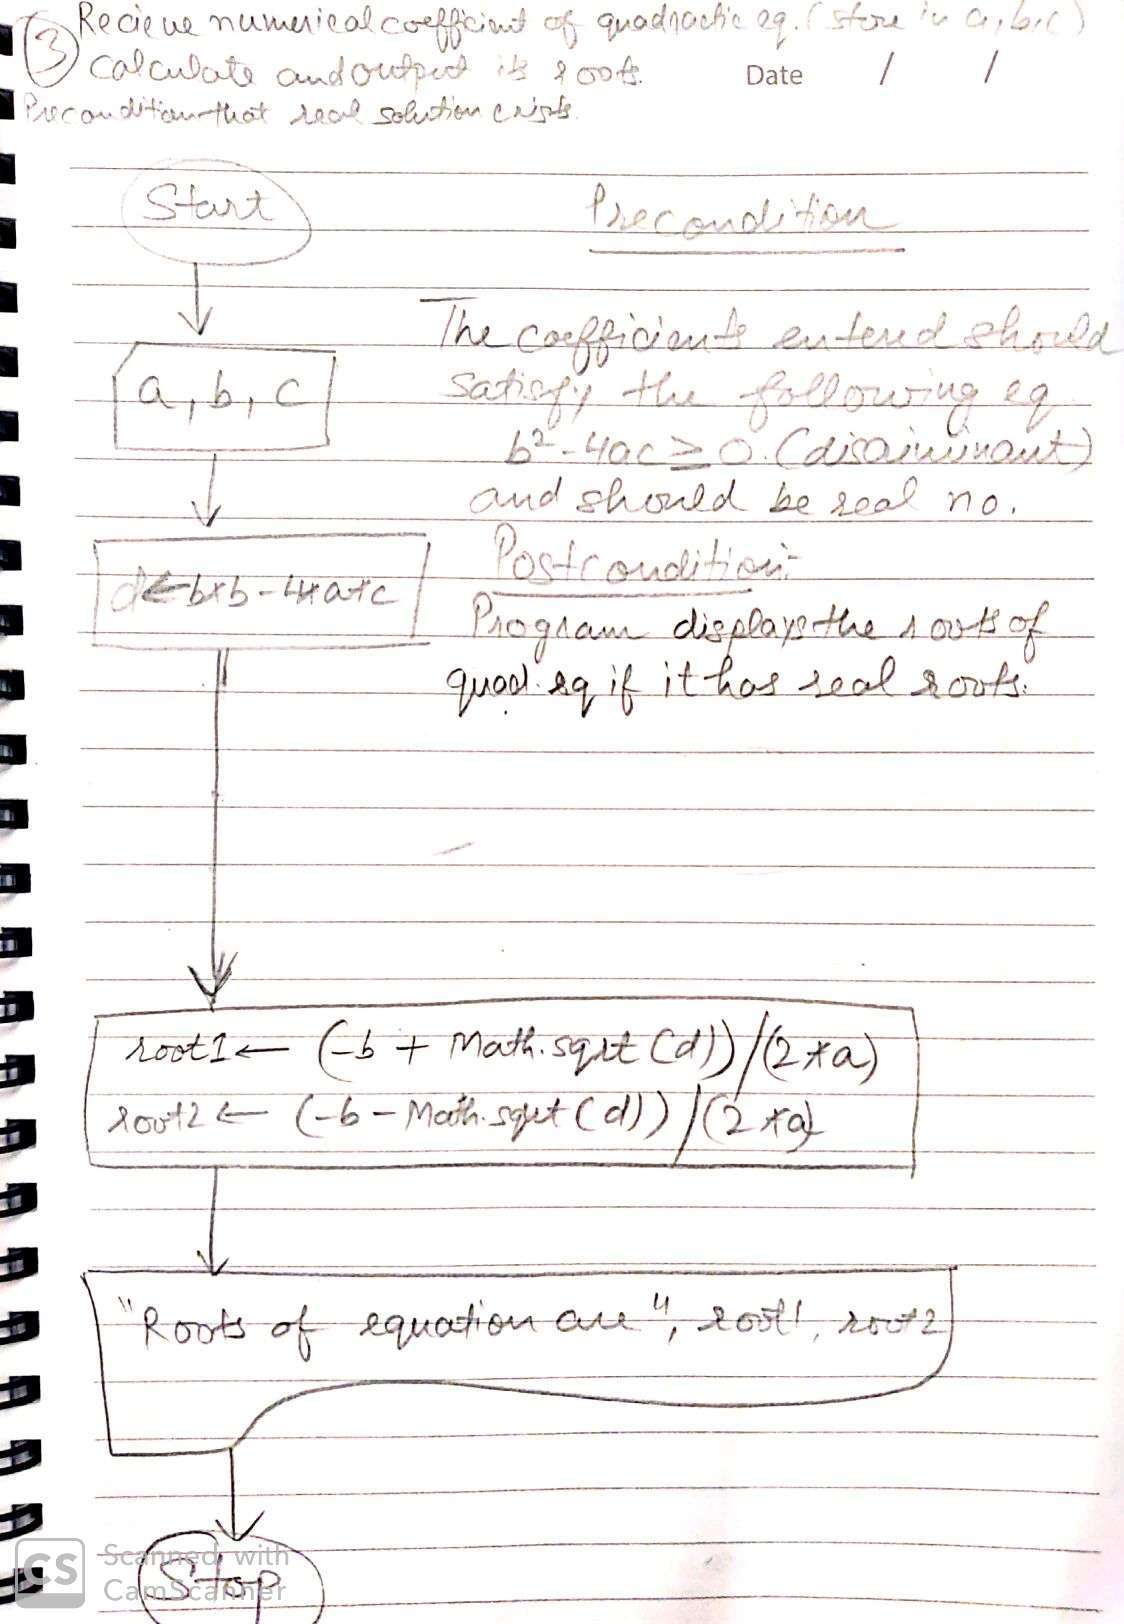 3 Recieve numerical coefficient of quadractic eq. (store in a, b, c)
calculate and output its roots.
Date / /
Precondition that real solution exists.
Start
Precondition
The coefficients entered should
a, b, c
satisfy the following eq
b² - 4ac ≥ 0. (discriminant)
and should be real no.
Postcondition:
d ← b*b - 4*a*c
Program displays the roots of
quad. eq if it has real roots.
root1 ← (-b + Math.sqrt (d)) / (2 * a)
root2 ← (-b - Math.sqrt (d)) / (2 * a)
"Roots of equation are", root1, root2
Stop
CS
Scanned with
CamScanner